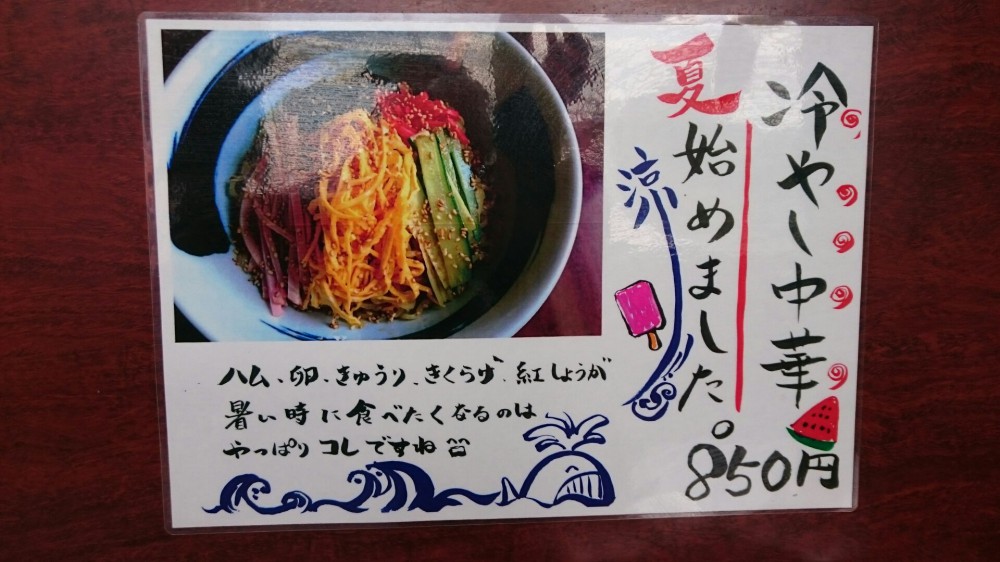 冷やし中華
夏始めました。
涼
850円
ハム、卵、きゅうり、きくらげ、紅しょうが
暑い時に食べたくなるのは
やっぱりコレですね